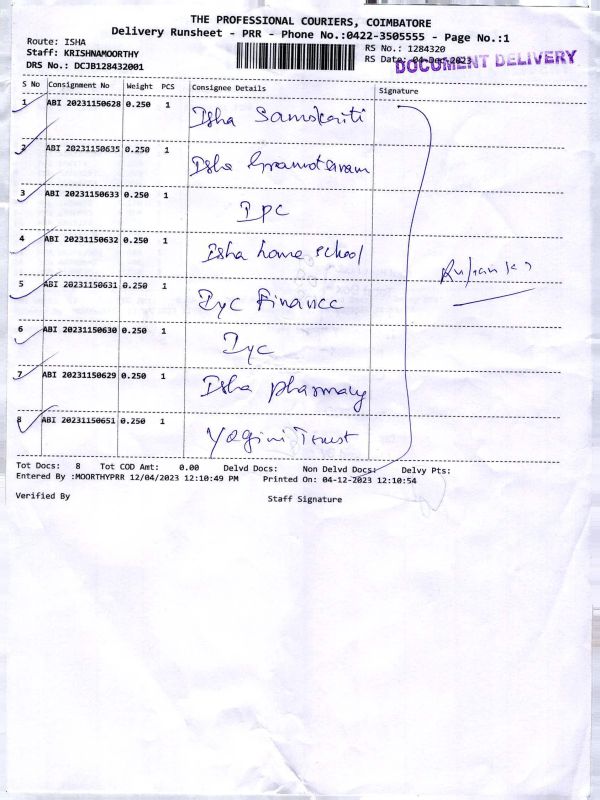 THE PROFESSIONAL COURIERS, COIMBATORE
Delivery Runsheet - PRR - Phone No.:0422-3505555 - Page No.:1
Route: ISHA
RS No.: 1284320
Staff: KRISHNAMOORTHY
RS Date: 04-Dec-2023
DOCUMENT DELIVERY
DRS No.: DCJB128432001
S No Consignment No Weight PCS Consignee Details Signature
1 ABI 20231150628 0.250 1 Isha Samskriti
2 ABI 20231150635 0.250 1 Isha
3 ABI 20231150633 0.250 1 IPC
4 ABI 20231150632 0.250 1 Isha home school
5 ABI 20231150631 0.250 1 Iyc Finance
6 ABI 20231150630 0.250 1 Iyc
7 ABI 20231150629 0.250 1 Isha pharmacy
8 ABI 20231150651 0.250 1 Yogini Trust
Tot Docs: 8 Tot COD Amt: 0.00 Delvd Docs: Non Delvd Docs: Delvy Pts:
Entered By :MOORTHYPRR 12/04/2023 12:10:49 PM Printed On: 04-12-2023 12:10:54
Verified By Staff Signature